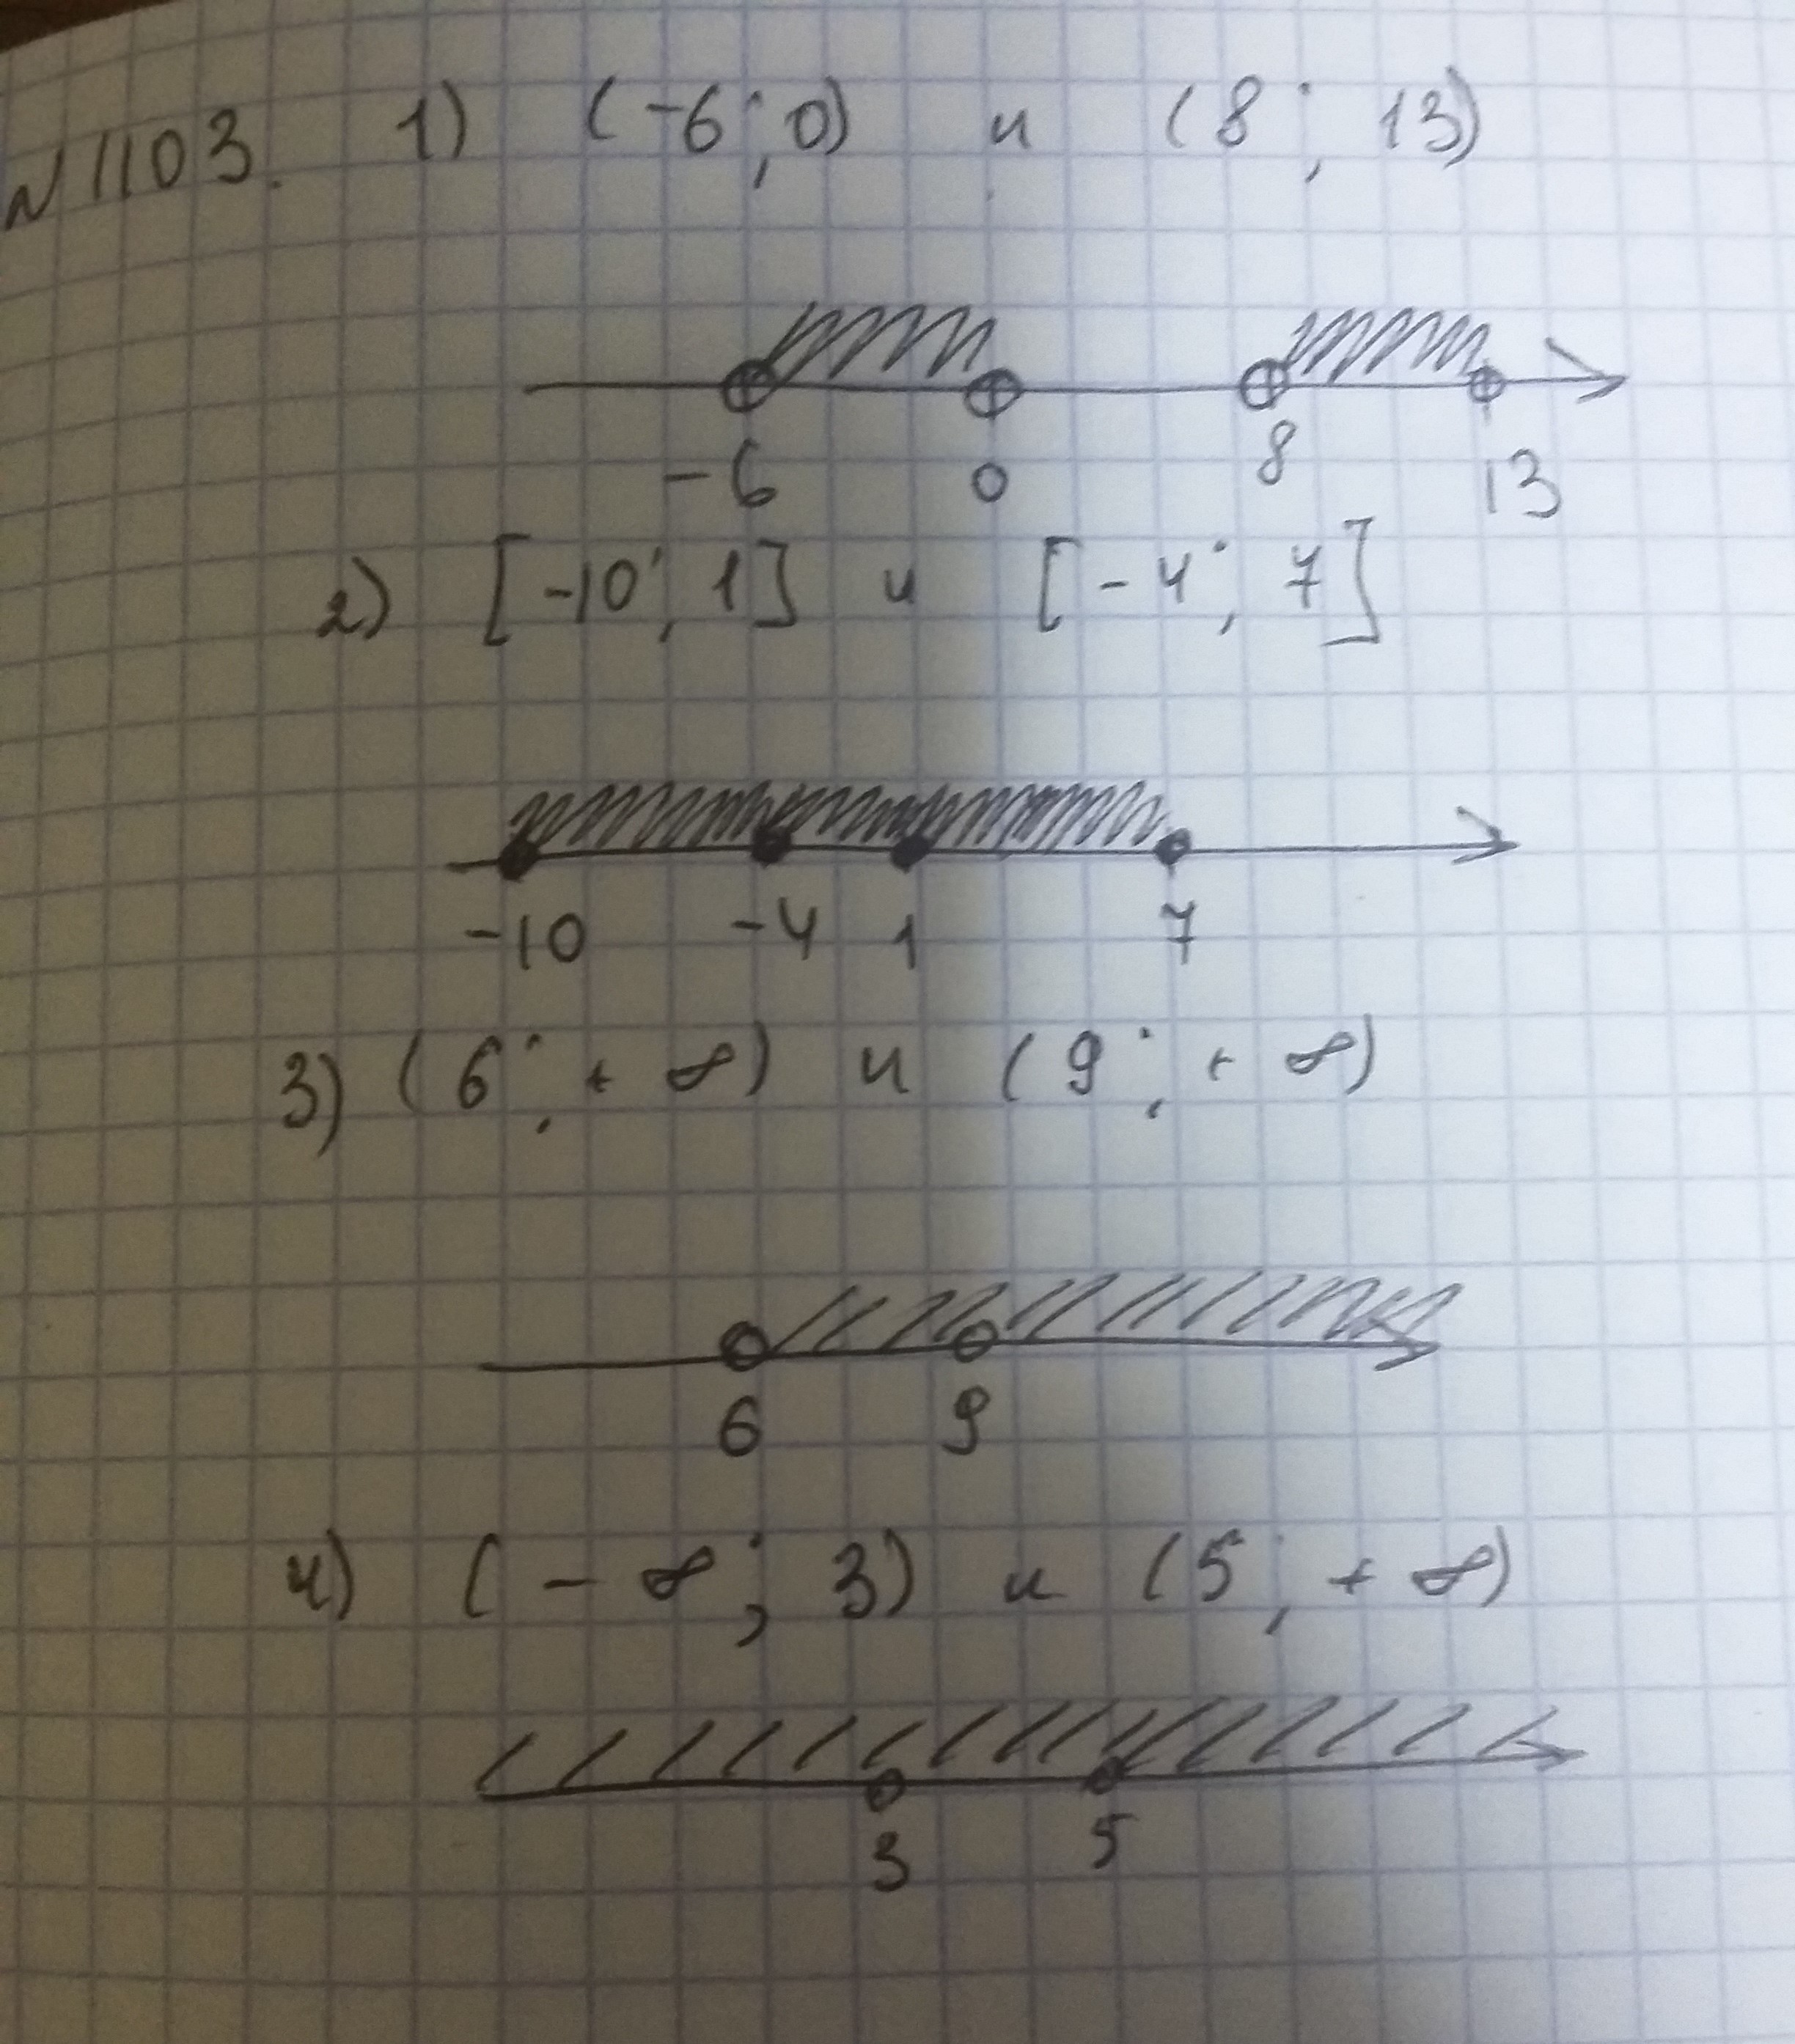 N1103. 1) (-6; 0) и (8; 13)
-6 0 8 13
2) [-10; 1] и [-4; 7]
-10 -4 1 7
3) (6; + ∞) и (9; + ∞)
6 9
4) (- ∞; 3) и (5; + ∞)
3 5